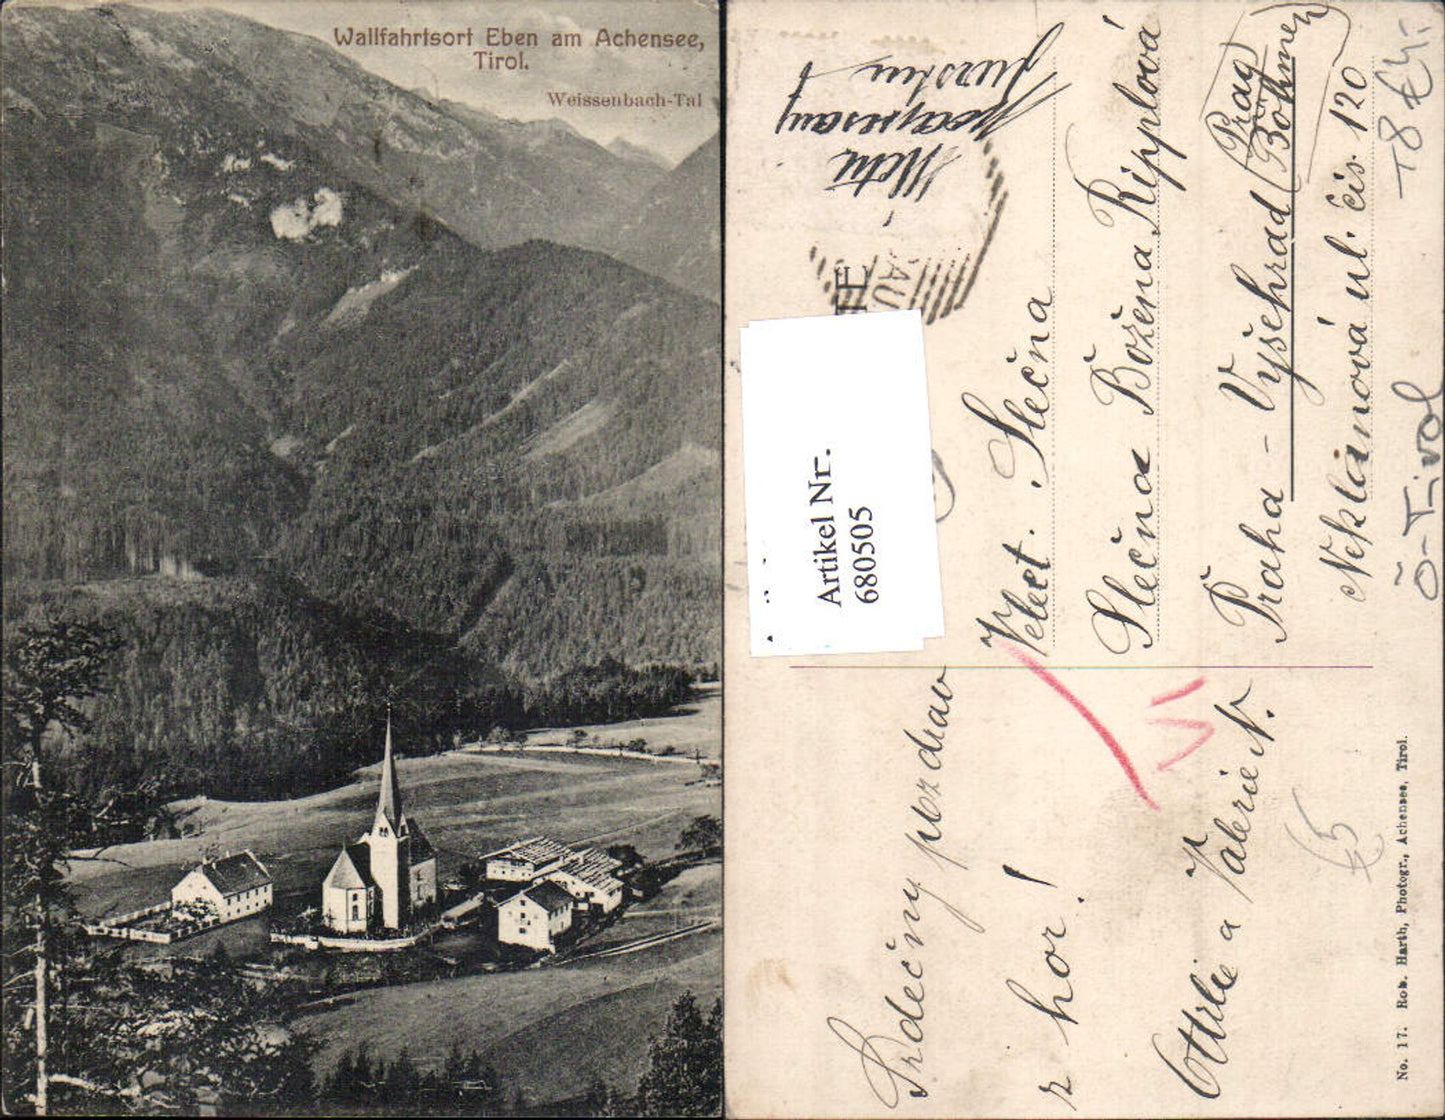 Wallfahrtsort Eben am Achensee,
Tirol.
Weissenbach-Tal
Artikel Nr.
680505
Velect. Slečna
Slečna Božena Ripplová
Praha - Vyšehrad (Prag
Böhmen)
Neklanová ul. čís. 120
Srdečný pozdrav
z hor!
Ottilie a Valerie N.
No. 17. Rob. Harth, Photogr., Achensee, Tirol.
Ö-Tirol